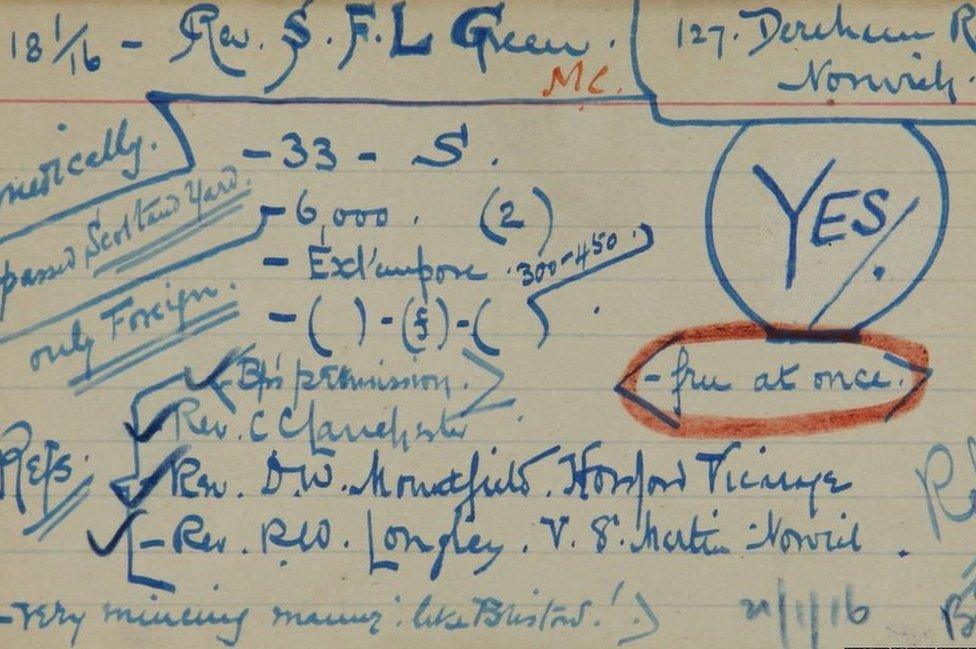 18 1/16 - Rev. S. F. L Green. 127. Dereham R
M.C. Norwich
medically. - 33 - S.
passed Scotland Yard. - 6,000. (2) YES/.
- Ext'empore 300-450.
only Foreign. - ( ) - (£) - ( )
- Bp's permission. - free at once.
Rev. C Lanchester
Refs. Rev. D.W. Mountfield. Horsford Vicarage
- Rev. R.W. Longley. V. S. Martin Norwich.
- very mincing manner: like !) 21/1/16